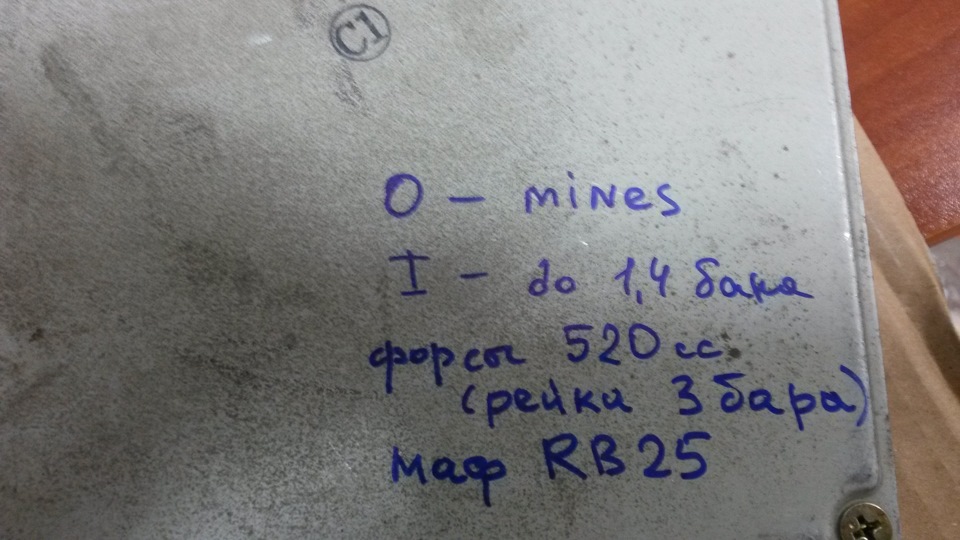 CI
O – mines
I – до 1,4 бара
форсы 520 cc
(рейка 3 бара)
маф RB25